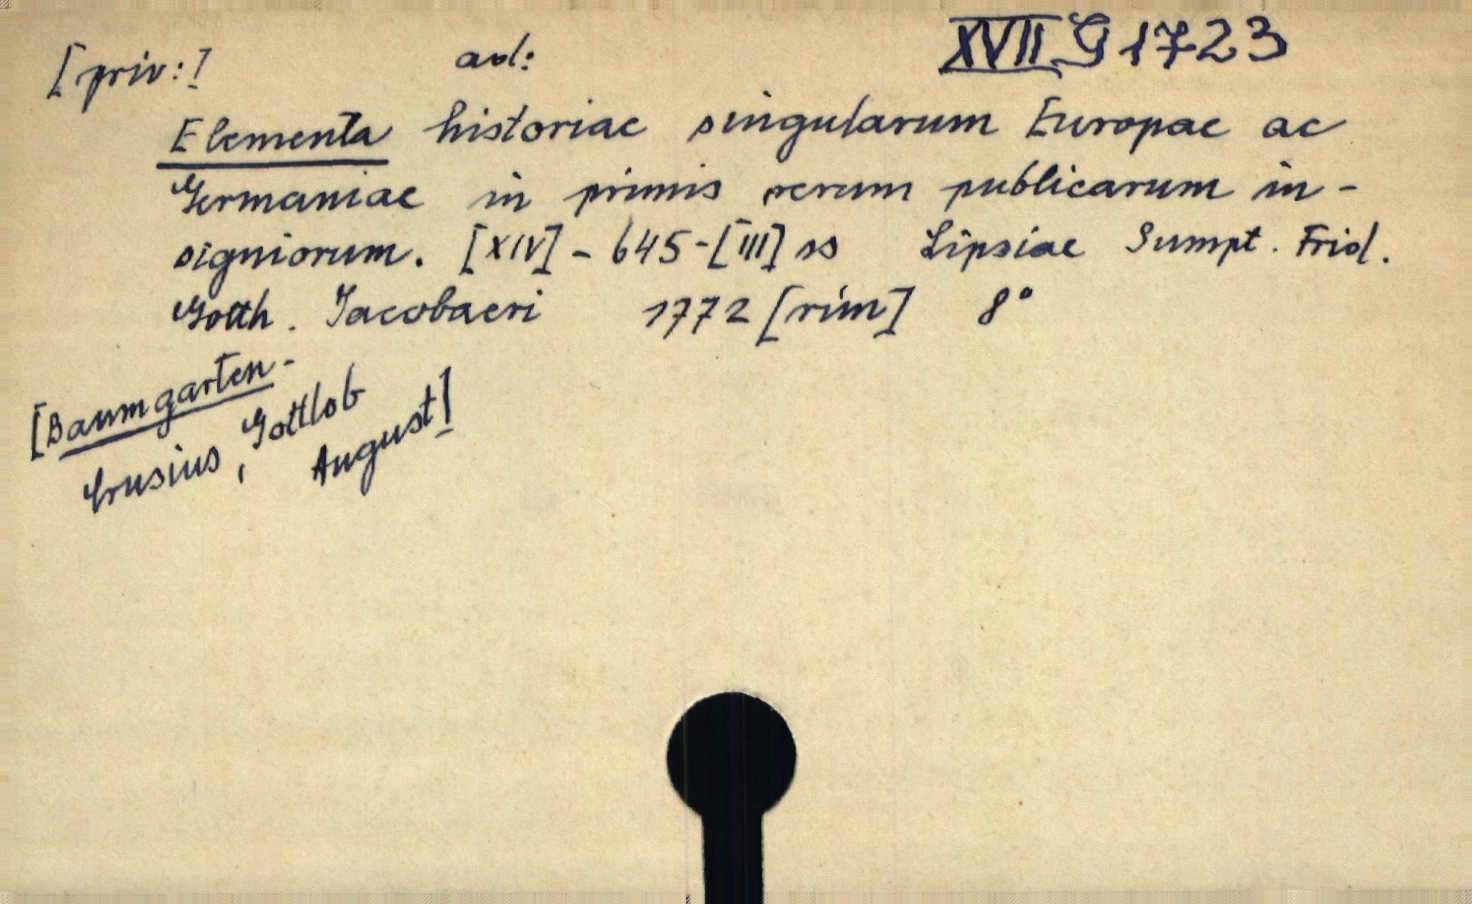 [priv:] ad: XVII G 1723
Elementa historiae singularum Europae ac
Germaniae in primis rerum publicarum in-
signiorum. [XIV] - 645 - [III] ss Lipsiae Sumpt. Frid.
Gotth. Jacobaeri 1772 [rim] 8°
[Baumgarten-
Crusius, Gottlob
August]